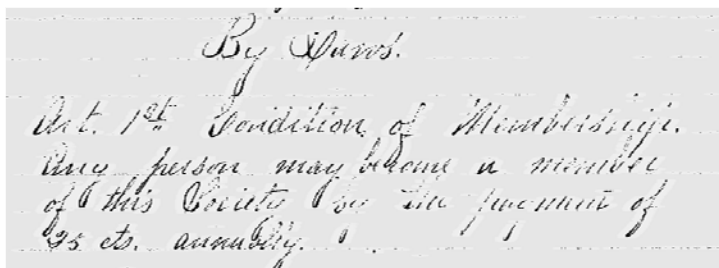 By Laws.
Art. 1st Condition of Membership.
Any person may become a member
of this Society by the payment of
25 cts. annually.